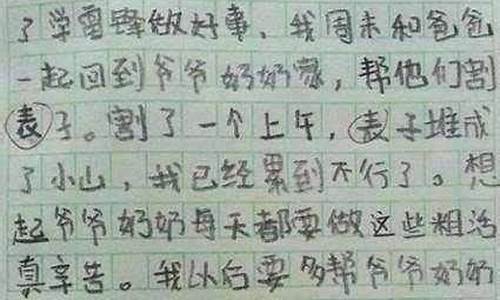 了学雷锋做好事，我周末和爸爸
一起回到爷爷奶奶家，帮他们割
表子。割了一个上午，表子堆成
了小山，我已经累到不行了。想
起爷爷奶奶每天都要做这些粗活
真辛告。我以后要多帮爷爷奶奶